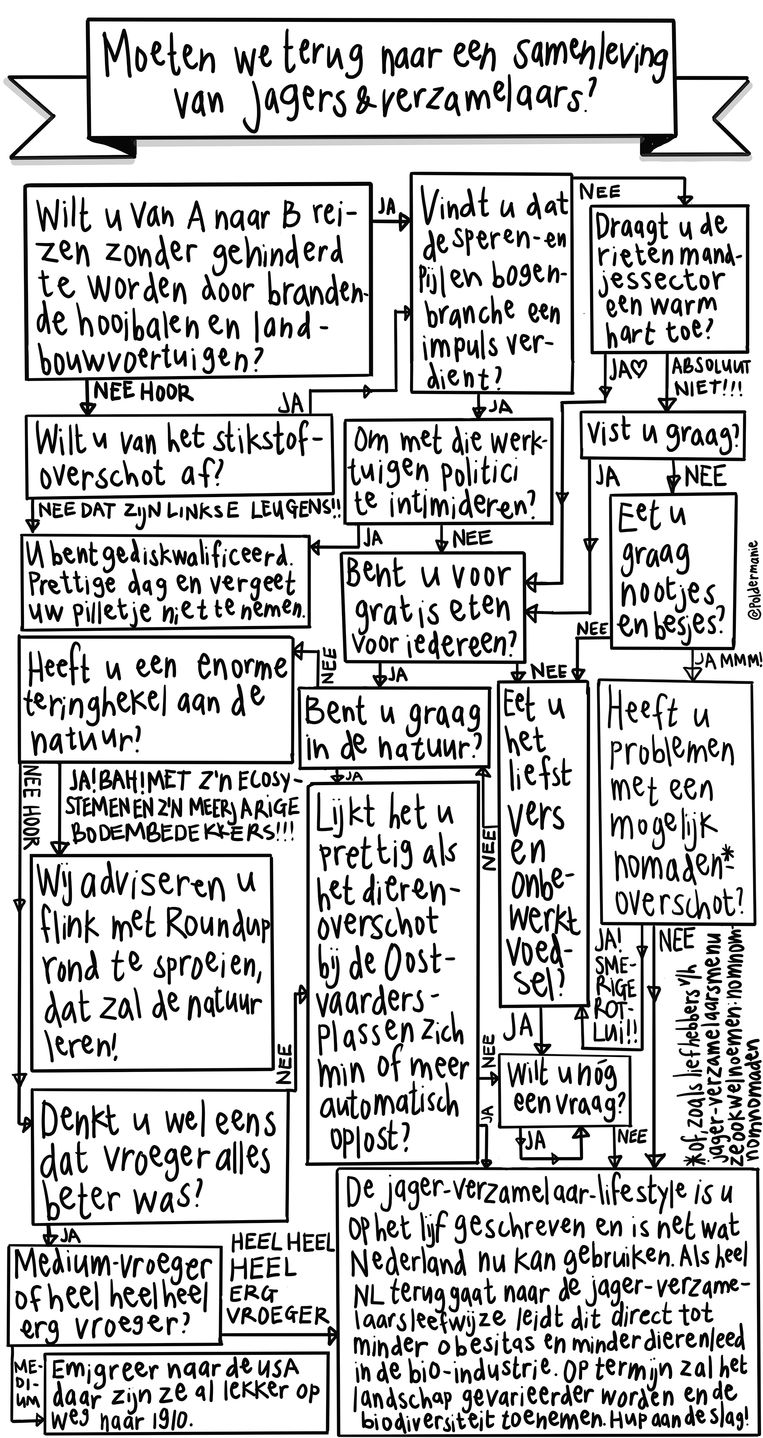 Moeten we terug naar een samenleving
van jagers & verzamelaars?
Wilt u van A naar B rei-
zen zonder gehinderd
te worden door branden-
de hooibalen en land-
bouwvoertuigen?
JA
NEE HOOR
Vindt u dat
de speren- en
pijl en bogen-
branche een
impuls ver-
dient?
NEE
JA
Draagt u de
rieten mand-
jessector
een warm
hart toe?
JA♡
ABSOLUUT
NIET!!!
Wilt u van het stikstof-
overschot af?
JA
NEE DAT ZIJN LINKSE LEUGENS!!
Om met die werk-
tuigen politici
te intimideren?
JA
NEE
Vist u graag?
JA
NEE
U bent gediskwalificeerd.
Prettige dag en vergeet
uw pilletje niet te nemen.
Bent u voor
gratis eten
voor iedereen?
JA
NEE
Eet u
graag
nootjes
en besjes?
NEE
JA MMM!
@Poldermanie
Heeft u een enorme
teringhekel aan de
natuur?
NEE HOOR
JA! BAH! MET Z'N ECOSY-
STEMEN EN Z'N MEERJARIGE
BODEMBEDEKKERS!!!
Bent u graag
in de natuur?
NEE
JA
Eet u
het
liefst
vers
en
onbe-
werkt
voed-
sel?
NEE!
JA
Heeft u
problemen
met een
mogelijk
nomaden-*
overschot?
JA!
SME-
RIGE
ROT-
LUI!!
NEE
*of, zoals liefhebbers v/h
jager-verzamelaarsmenu
ze ook wel noemen: nomnom-
nomnomaden
Wij adviseren u
flink met Roundup
rond te sproeien,
dat zal de natuur
leren!
Lijkt het u
prettig als
het dieren-
overschot
bij de Oost-
vaarders-
plassen zich
min of meer
automatisch
oplost?
NEE
JA
Wilt u nóg
een vraag?
JA
NEE
Denkt u wel eens
dat vroeger alles
beter was?
NEE
JA
Medium-vroeger
of heel heel heel
erg vroeger?
HEEL HEEL
HEEL
ERG
VROEGER
ME-
DI-
UM
Emigreer naar de USA
daar zijn ze al lekker op
weg naar 1910.
De jager-verzamelaar-lifestyle is u
op het lijf geschreven en is net wat
Nederland nu kan gebruiken. Als heel
NL terug gaat naar de jager-verzame-
laarsleefwijze leidt dit direct tot
minder obesitas en minder dierenleed
in de bio-industrie. Op termijn zal het
landschap gevarieerder worden en de
biodiversiteit toenemen. Hup aan de slag!